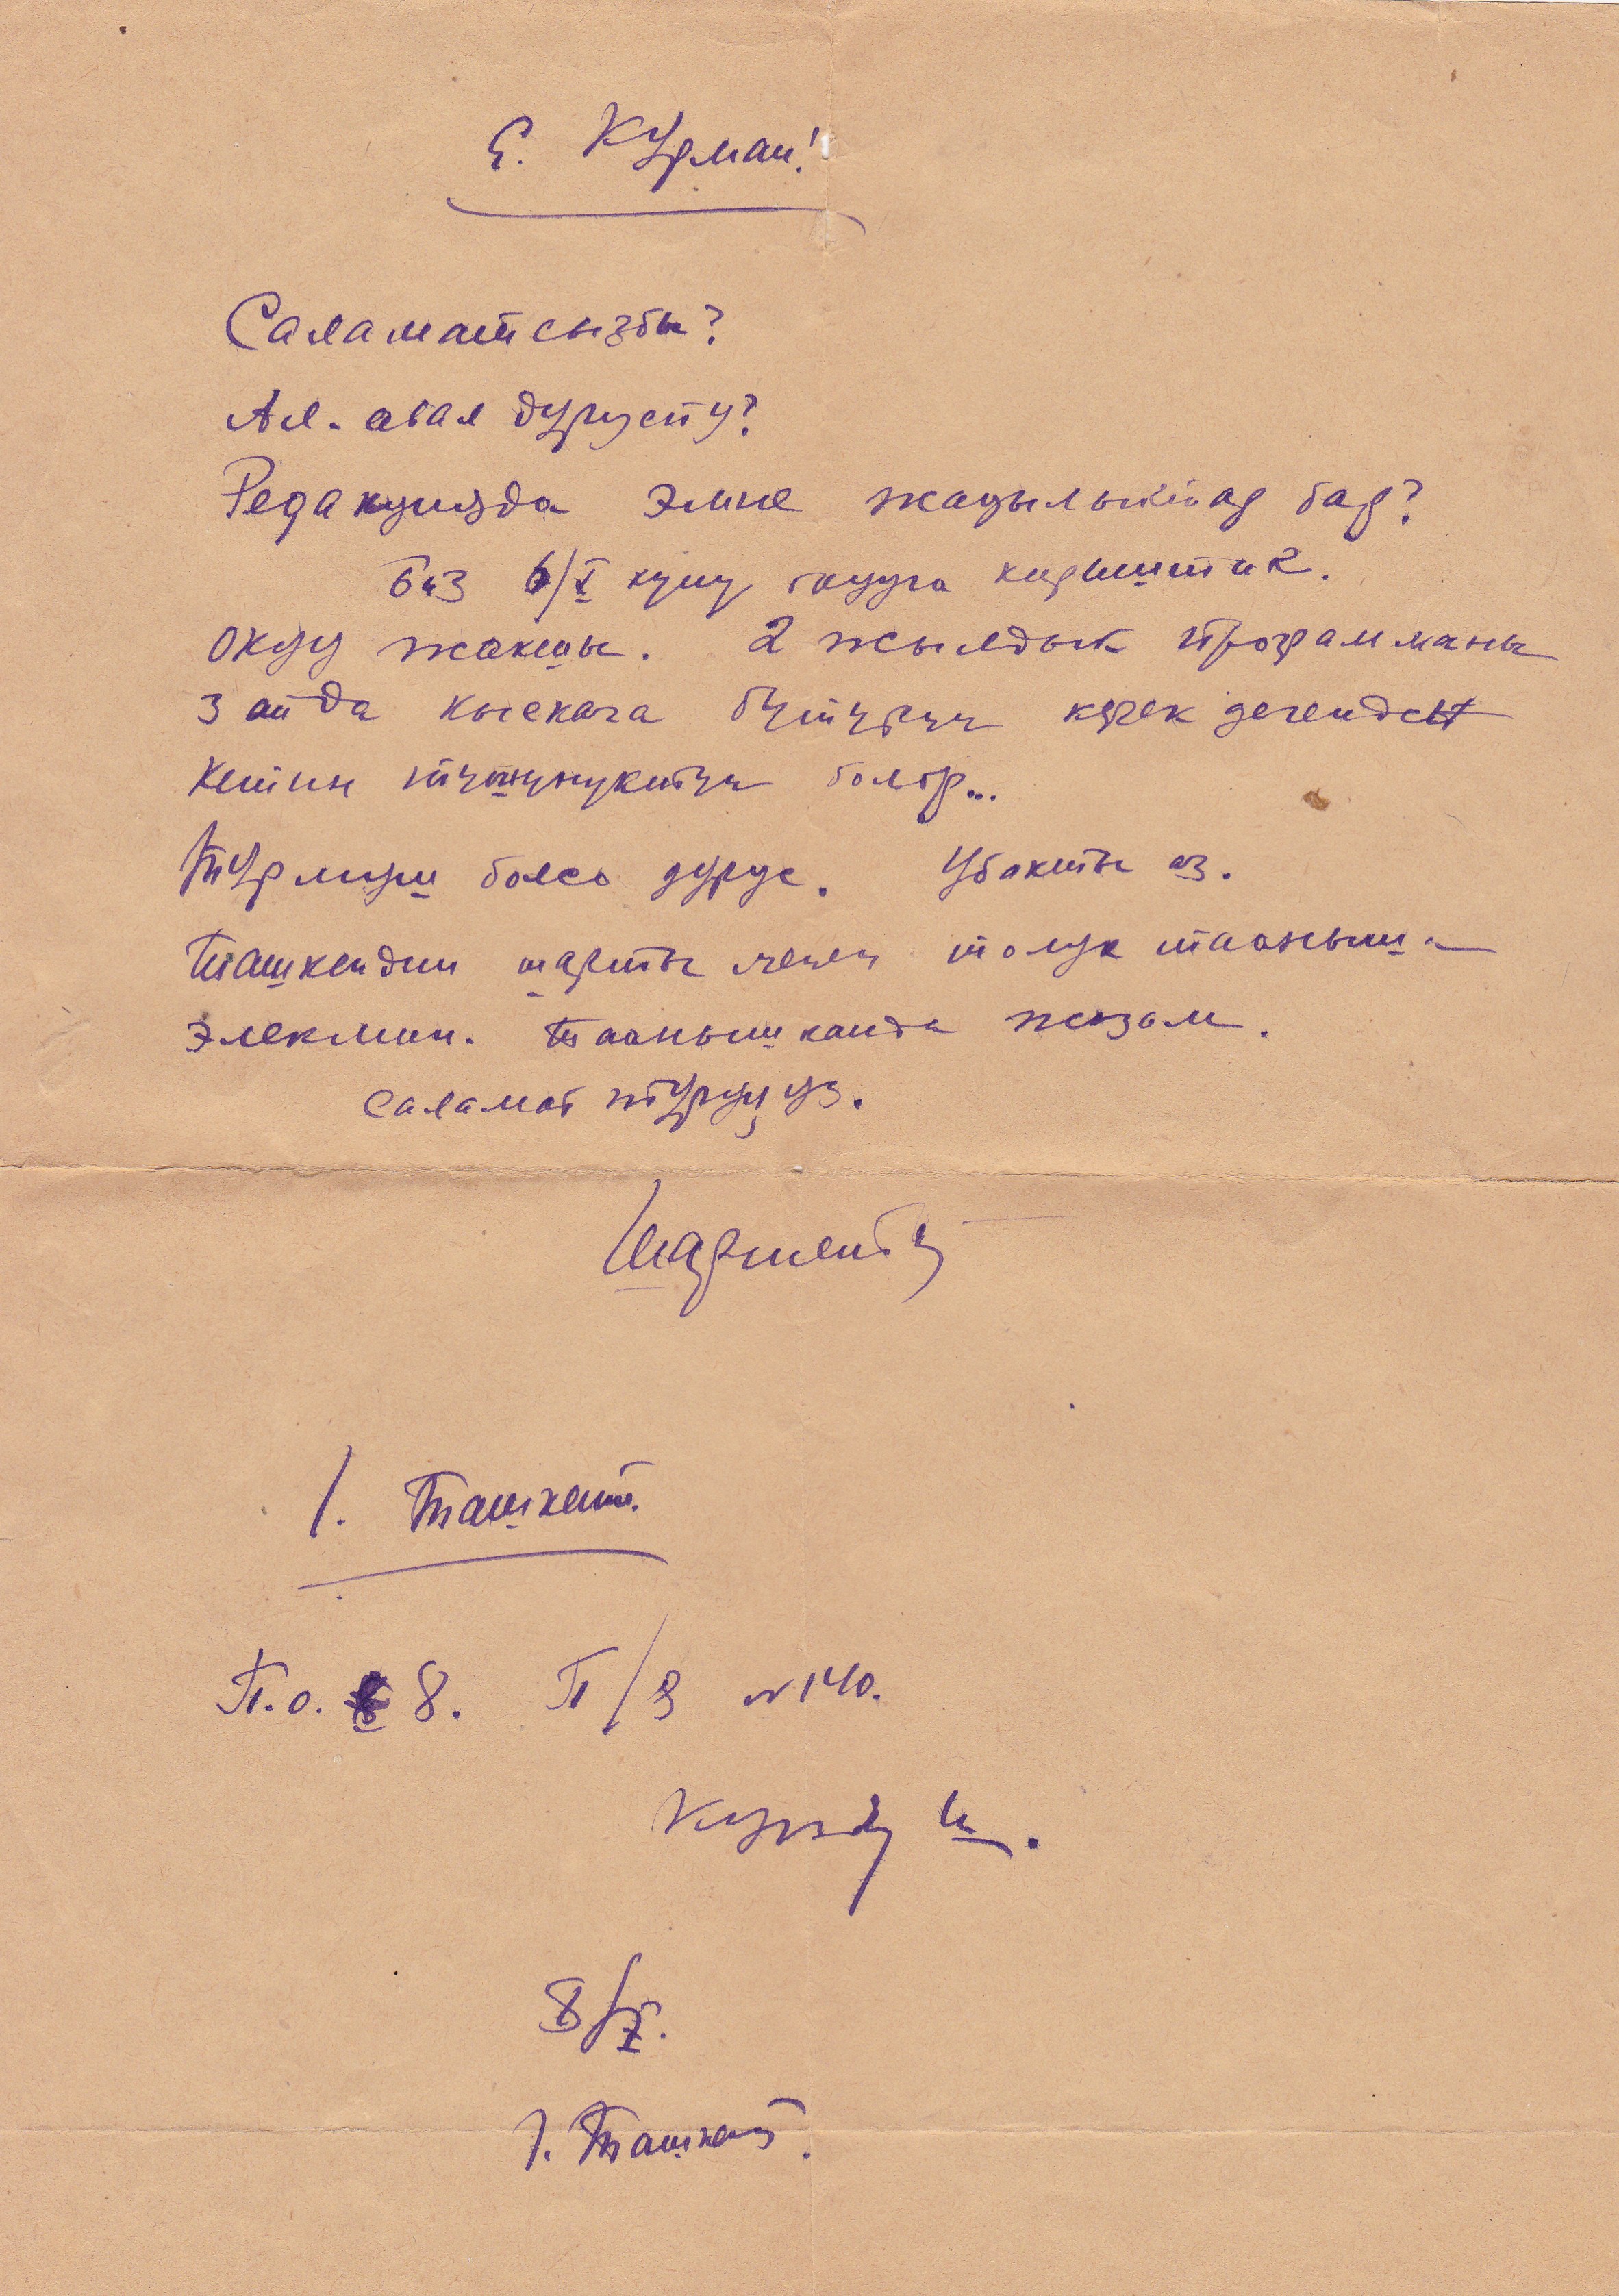 Е. Курман!
Саламатсызбы?
Ал-авал дурусту?
Редакцияда эмне жаңылыктар бар?
Биз 6/X күнү окууга кириштик.
Окуу жакшы. 2 жылдык программаны
3 айда кыскача бүтүрүү керек дегенден
кейин түшүнүктүү болор...
Турмуш болсо дурус. Убакыт аз.
Ташкендин шарты менен толук тааныш
элекмин. Таанышканда жазам.
Саламат туруңуз.
г. Ташкент.
П.о. 8. П/Я № 140.
8/X.
г. Ташкент.